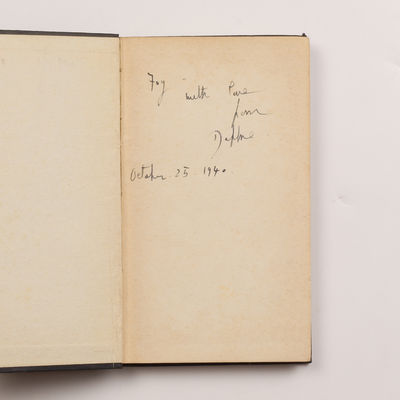 Foy with love
from
Daphne
October 25. 1940.